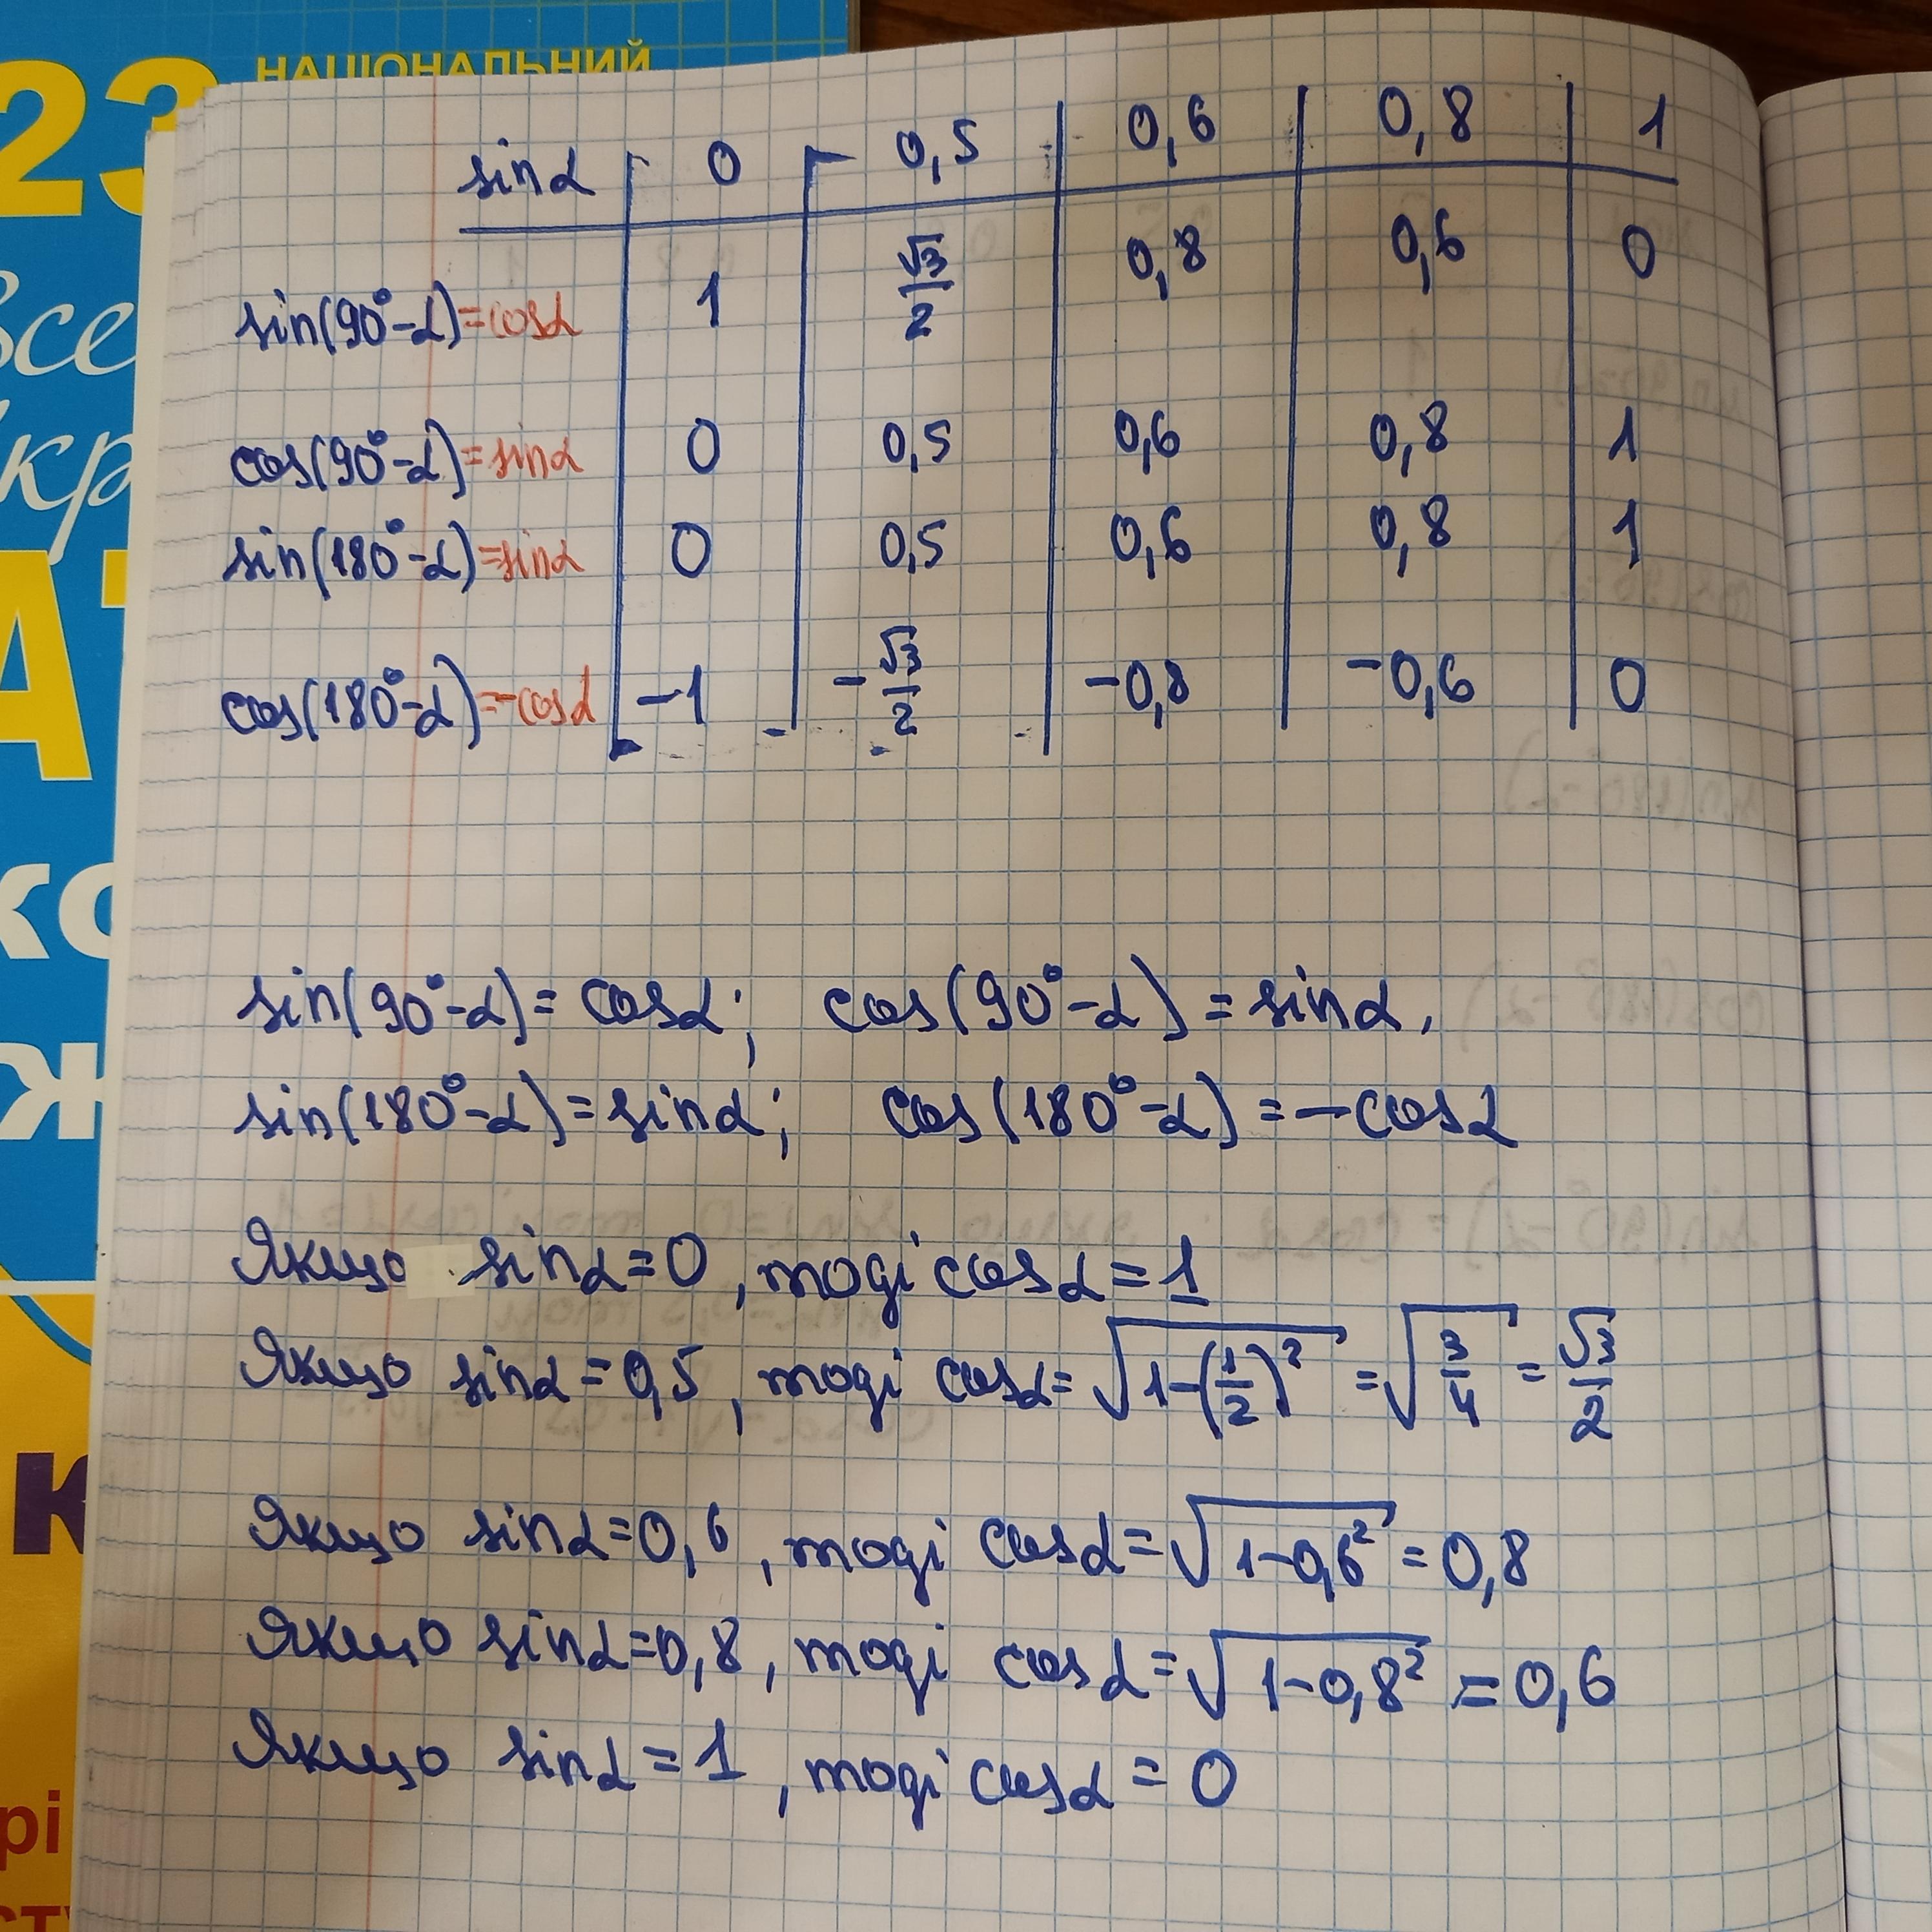 23
НАЦІОНАЛЬНИЙ
sinα 0 0,5 0,6 0,8 1
sin(90°-α)=cosα 1 √3/2 0,8 0,6 0
cos(90°-α)=sinα 0 0,5 0,6 0,8 1
sin(180°-α)=sinα 0 0,5 0,6 0,8 1
cos(180°-α)=-cosα -1 -√3/2 -0,8 -0,6 0
sin(90°-α)=cosα; cos(90°-α)=sinα,
sin(180°-α)=sinα; cos(180°-α)=-cosα
Якщо sinα=0, тоді cosα=1
Якщо sinα=0,5, тоді cosα=√(1-(1/2)²)=√(3/4)=√3/2
Якщо sinα=0,6, тоді cosα=√(1-0,6²)=0,8
Якщо sinα=0,8, тоді cosα=√(1-0,8²)=0,6
Якщо sinα=1, тоді cosα=0